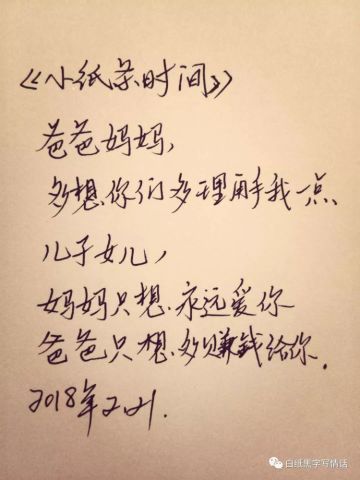 《小纸条时间》
爸爸妈妈,
多想你们多理解我一点
儿子女儿,
妈妈只想永远爱你
爸爸只想多赚钱给你.
2018年2.21.
白纸黑字写情话